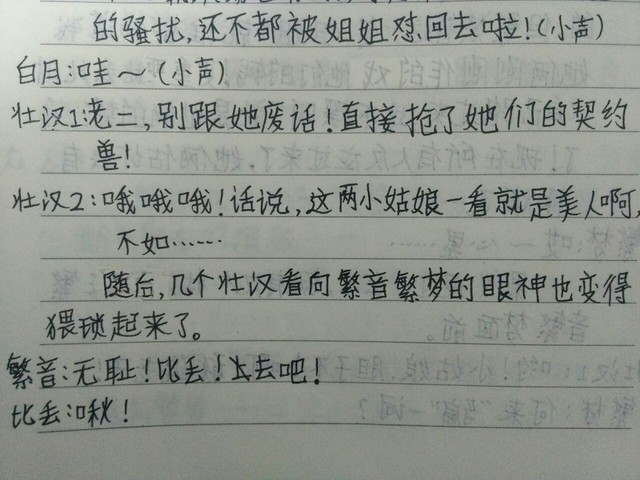 的骚扰,还不都被姐姐怼回去啦!(小声)
白月:哇~(小声)
壮汉1:老二,别跟她废话!直接抢了她们的契约
兽!
壮汉2:哦哦哦!话说,这两小姑娘一看就是美人啊,
不如……
随后,几个壮汉看向繁音繁梦的眼神也变得
猥琐起来了。
繁音:无耻!比丢!上去吧!
比丢:啾!